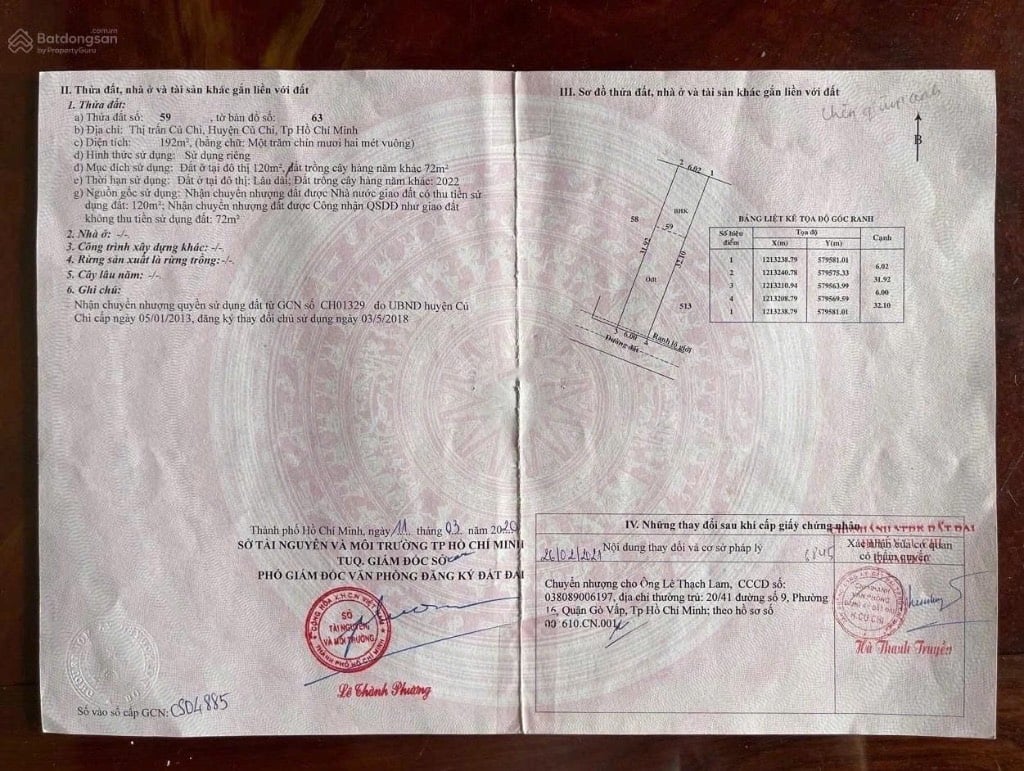 Batdongsan.com.vn
by PropertyGuru
II. Thửa đất, nhà ở và tài sản khác gắn liền với đất
1. Thửa đất:
a) Thửa đất số: 59 , tờ bản đồ số: 63
b) Địa chỉ: Thị trấn Củ Chi, Huyện Củ Chi, Tp Hồ Chí Minh
c) Diện tích: 192m², (bằng chữ: Một trăm chín mươi hai mét vuông)
d) Hình thức sử dụng: Sử dụng riêng
đ) Mục đích sử dụng: Đất ở tại đô thị 120m², đất trồng cây hàng năm khác 72m²
e) Thời hạn sử dụng: Đất ở tại đô thị: Lâu dài; Đất trồng cây hàng năm khác: 2022
g) Nguồn gốc sử dụng: Nhận chuyển nhượng đất được Nhà nước giao đất có thu tiền sử
dụng đất: 120m²; Nhận chuyển nhượng đất được Công nhận QSDĐ như giao đất
không thu tiền sử dụng đất: 72m²
2. Nhà ở: -/-
3. Công trình xây dựng khác: -/-
4. Rừng sản xuất là rừng trồng: -/-
5. Cây lâu năm: -/-
6. Ghi chú:
Nhận chuyển nhượng quyền sử dụng đất từ GCN số CH01329 do UBND huyện Củ
Chi cấp ngày 05/01/2013, đăng ký thay đổi chủ sử dụng ngày 03/5/2018
Thành phố Hồ Chí Minh, ngày 11 tháng 03 năm 2020
SỞ TÀI NGUYÊN VÀ MÔI TRƯỜNG TP HỒ CHÍ MINH
TUQ. GIÁM ĐỐC SỞ
PHÓ GIÁM ĐỐC VĂN PHÒNG ĐĂNG KÝ ĐẤT ĐAI
CỘNG HÒA X.H.C.N VIỆT NAM
SỞ
TÀI NGUYÊN
VÀ MÔI TRƯỜNG
THÀNH PHỐ HỒ CHÍ MINH
Lê Thành Phương
Số vào sổ cấp GCN: CS04885
III. Sơ đồ thửa đất, nhà ở và tài sản khác gắn liền với đất
B
2 6.02 1
BHK
58
59
31.92
32.10
Odt
513
3 6.00 4
Ranh lộ giới
Đường đất
BẢNG LIỆT KÊ TỌA ĐỘ GÓC RANH
Số hiệu điểm Tọa độ Cạnh
X(m) Y(m)
1 1213238.79 579581.01
6.02
2 1213240.78 579575.33
31.92
3 1213210.94 579563.99
6.00
4 1213208.79 579569.59
32.10
1 1213238.79 579581.01
IV. Những thay đổi sau khi cấp giấy chứng nhận
26/02/2021 Nội dung thay đổi và cơ sở pháp lý 6845
Xác nhận của cơ quan
có thẩm quyền
Chuyển nhượng cho Ông Lê Thạch Lam, CCCD số:
038089006197, địa chỉ thường trú: 20/41 đường số 9, Phường
16, Quận Gò Vấp, Tp Hồ Chí Minh; theo hồ sơ số
610.CN.001
CHI NHÁNH
VĂN PHÒNG
ĐĂNG KÝ ĐẤT ĐAI
H.CỦ CHI
Hà Thanh Truyền